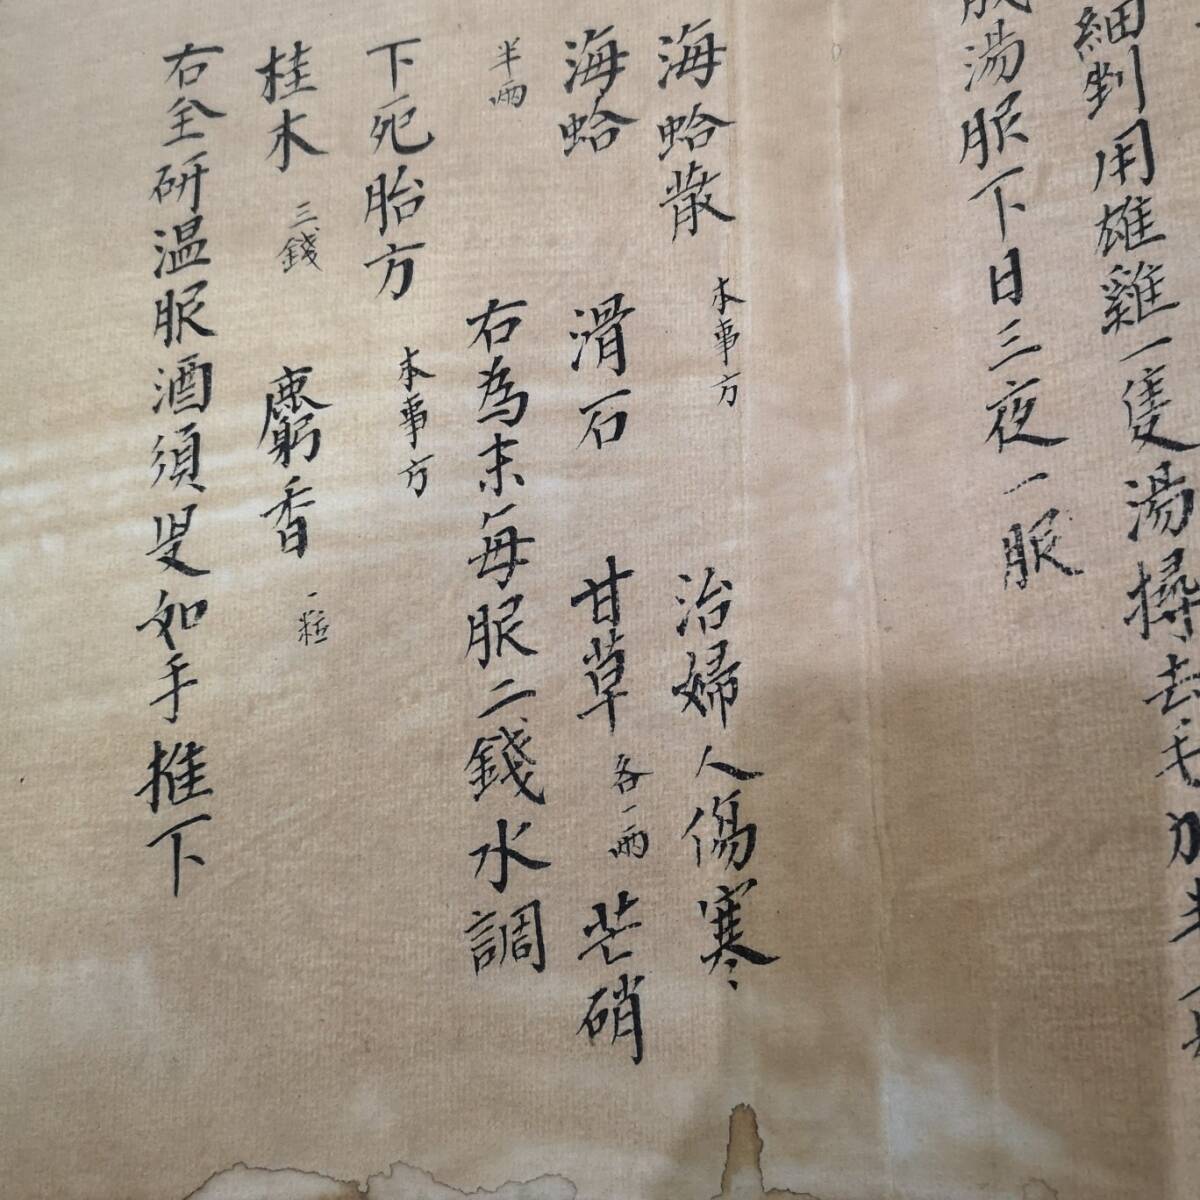 細剉用雄雞一隻湯撏去毛
湯服下日三夜一服
海蛤散 本事方 治婦人傷寒
海蛤 滑石 甘草 各一兩 芒硝
半兩 右為末每服二錢水調
下死胎方 本事方
桂木 三錢 麝香 一粒
右仝研温服酒須臾如手推下